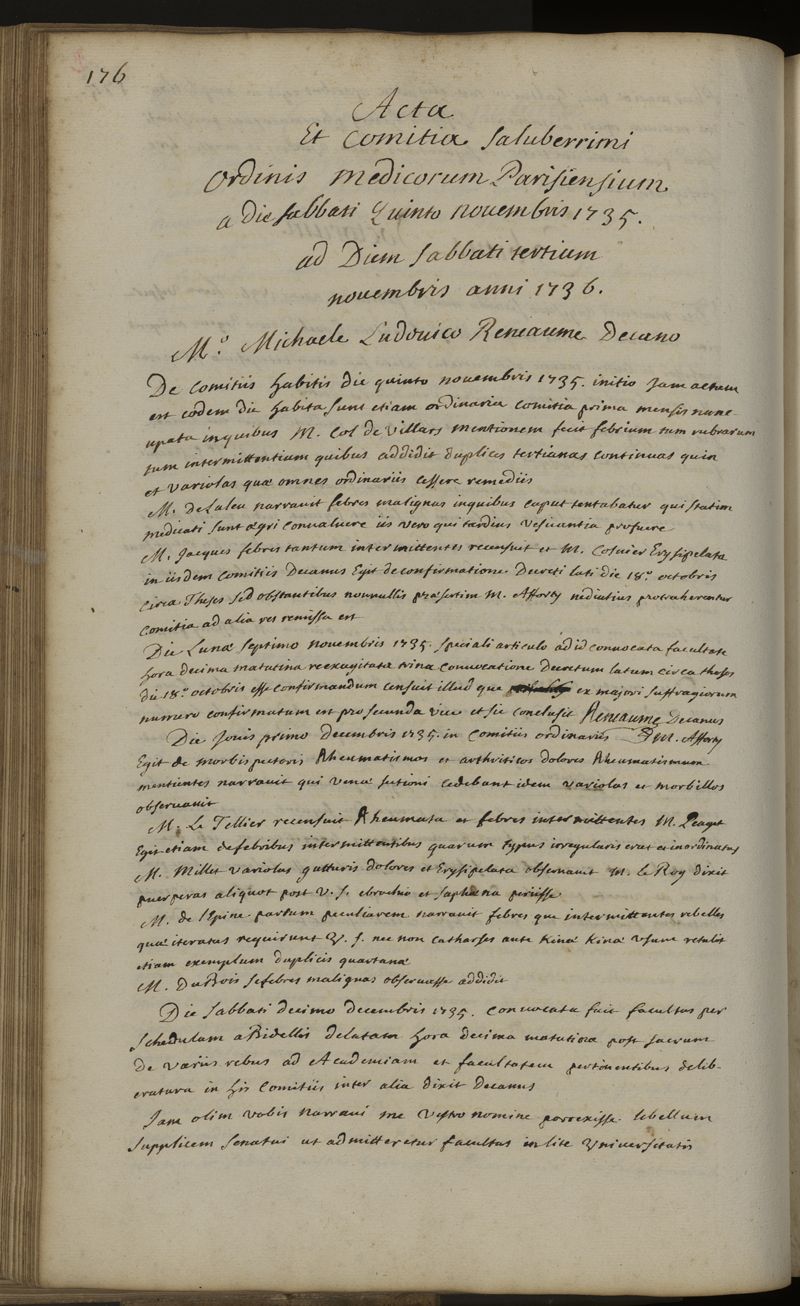 176
Acta
Et Comitia Saluberrimi
Ordinis medicorum Parisiensium
a Die sabbati Quinto novembris 1735.
ad Diem sabbati tertium
novembris anni 1736.
M.º Michaele Ludovico Reneaume Decano
De Comitiis habitis die quinto novembris 1735. initio jam actum
est eodem die habita sunt etiam ordinaria Comitia prima mensis nunc-
upata in quibus M. Col de Villars mentionem fecit febrium tum rubrarum
tum intermittentium quibus addidit duplices tertianas continuas quin
et variolas quae omnes ordinariis cessere remediis
M. De Laleu narravit febres malignas in quibus caput tentabatur qui statim
medicati sunt aegri convaluere iis vero qui tardius vesicantia profuere
M. Jacques febres tantum intermittentes recensuit et M. Cosnier Erysipelata
in iisdem Comitiis Decanus Egit de confirmatione Decreti lati die 18.º octobris
Circa Theses sed obstantibus nonnullis praesertim M. Afforty ne diutius protraherentur
Comitia ad alia res remissa est
Die Lunae septimo novembris 1735. speciali articulo ad id convocata facultate
hora decima matutina reexagitata trina convocatione Decretum latum circa theses
die 18.º octobris esse confirmandum censuit illud que ex majori suffragiorum
numero confirmatum est pro secunda vice et sic conclusit Reneaume Decanus
Die Jovis primo Decembris 1735. in Comitiis ordinariis M. Afforty
Egit de morbis pectoris Rheumatismos et arthriticos dolores Rheumatismum
mentientes narravit qui venae sectioni cedebant idem variolas et morbillos
observavit
M. Le Tellier recensuit Rheumata et febres intermittentes M. Peaget
Egit etiam de febribus intermittentibus quarum typus irregularis erat et inordinatus
M. Millet variolas gutturis dolores et Erysipelata observavit M. le Roy dixit
puerperas aliquot post V. S. e brachio et saphaena periisse
M. de l'Epine partum peculiarem narravit febres que intermittentes rebelles
quae iteratas requirunt V. S. nec non Catharses ante Kina Kinae usum retulit
etiam exemplum duplicis quartanae
M. DuBois se febres malignas observasse addidit
Die Sabbati decimo decembris 1735. Convocata fuit facultas per
Schedulam a Bidellis delatam hora decima matutina post sacrum
De variis rebus ad Academiam et facultatem pertinentibus delib-
eratura in his Comitiis inter alia dixit Decanus
Jam olim vobis narravi me vestro nomine porrexisse libellum
Supplicem Senatui ut admitteretur facultas in lite Universitatis